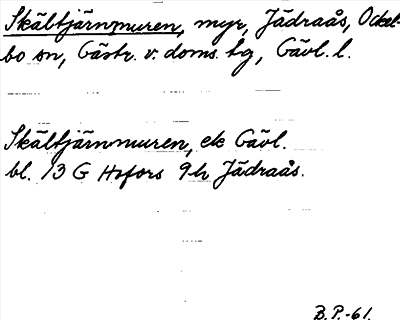 Skältjärnmuren, myr, Jädraås, Ockel-
bo sn, Gästr. v. doms. tg, Gävl. l.
Skältjärnmuren, ek Gävl.
bl. 13 G Hofors 9h Jädraås.
B.P.-61.